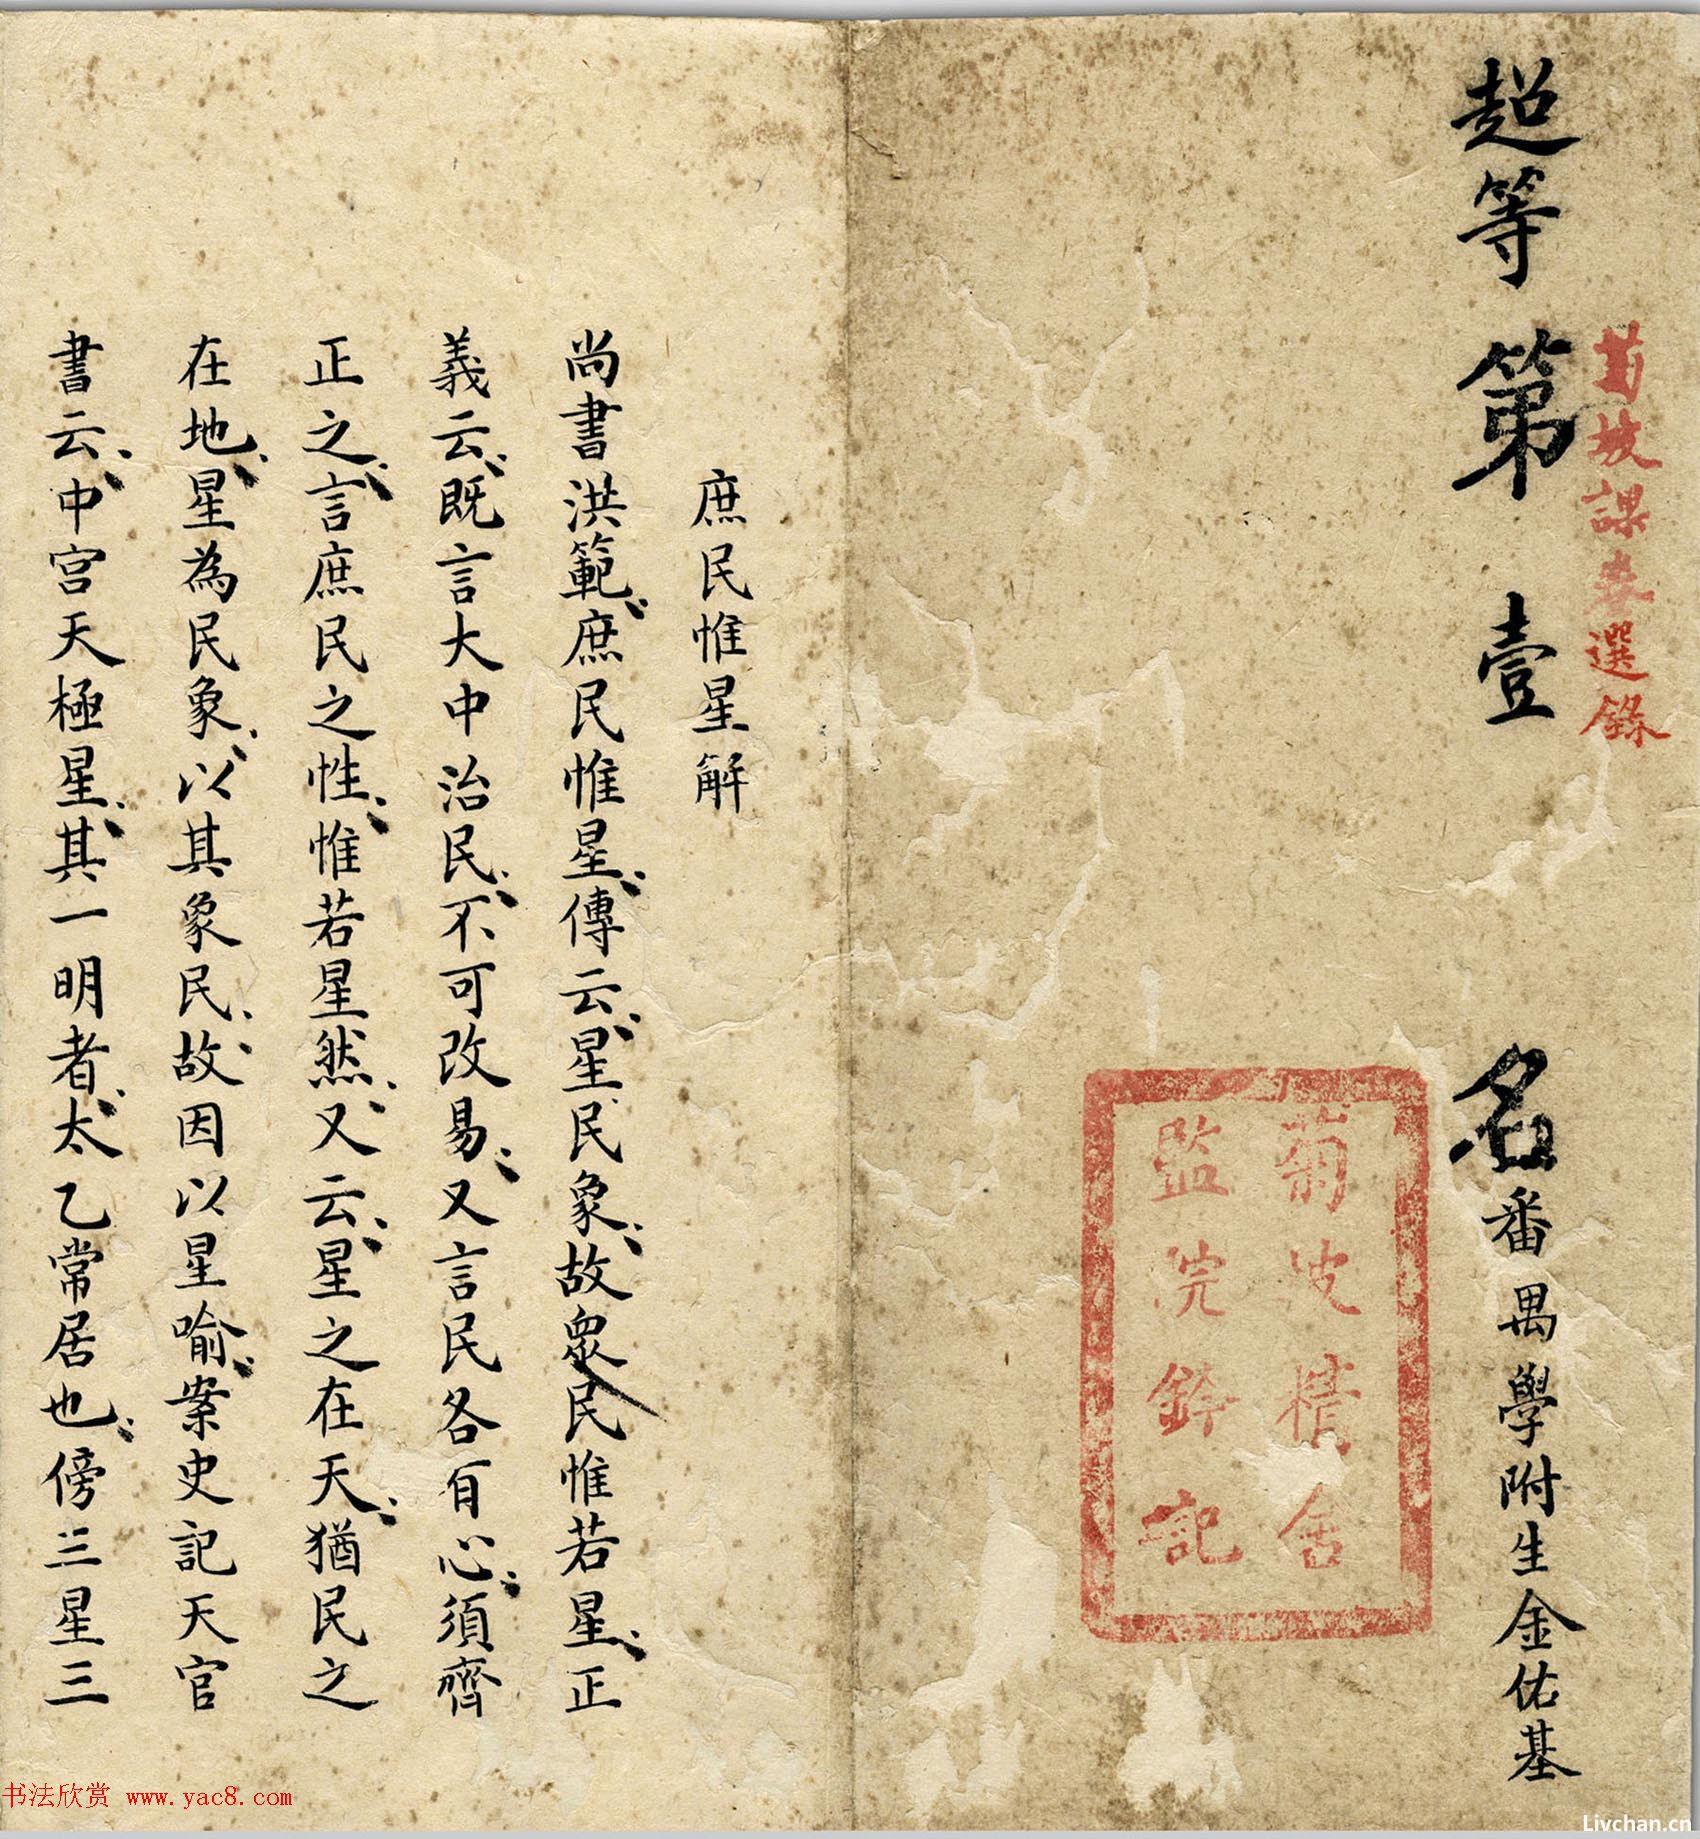 菊坡課卷選錄
超等第壹名番禺學附生金佑基
菊坡精舍
監院鈐記
庶民惟星解
尚書洪範庶民惟星傳云星民象故眾民惟若星正
義云既言大中治民不可改易又言民各有心須齊
正之言庶民之性惟若星然又云星之在天猶民之
在地星為民象以其象民故因以星喻案史記天官
書云中宮天極星其一明者太乙常居也傍三星三
书法欣赏 www.yac8.com
Livchan.cn